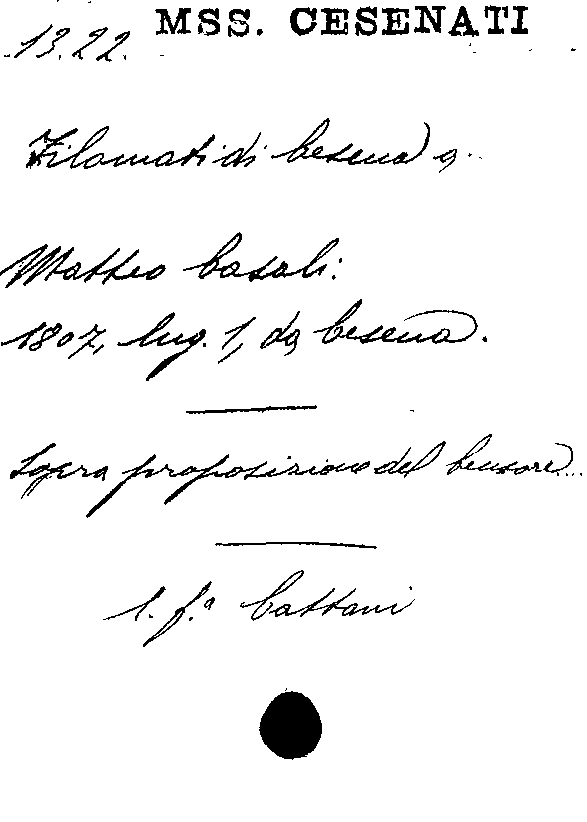 MSS. CESENATI
13.22.
Filomati di Cesena a..
Matteo Casali:
1807, lug. 1, da Cesena.
Sopra proposizione del Censore...
l. f.ª Cattani